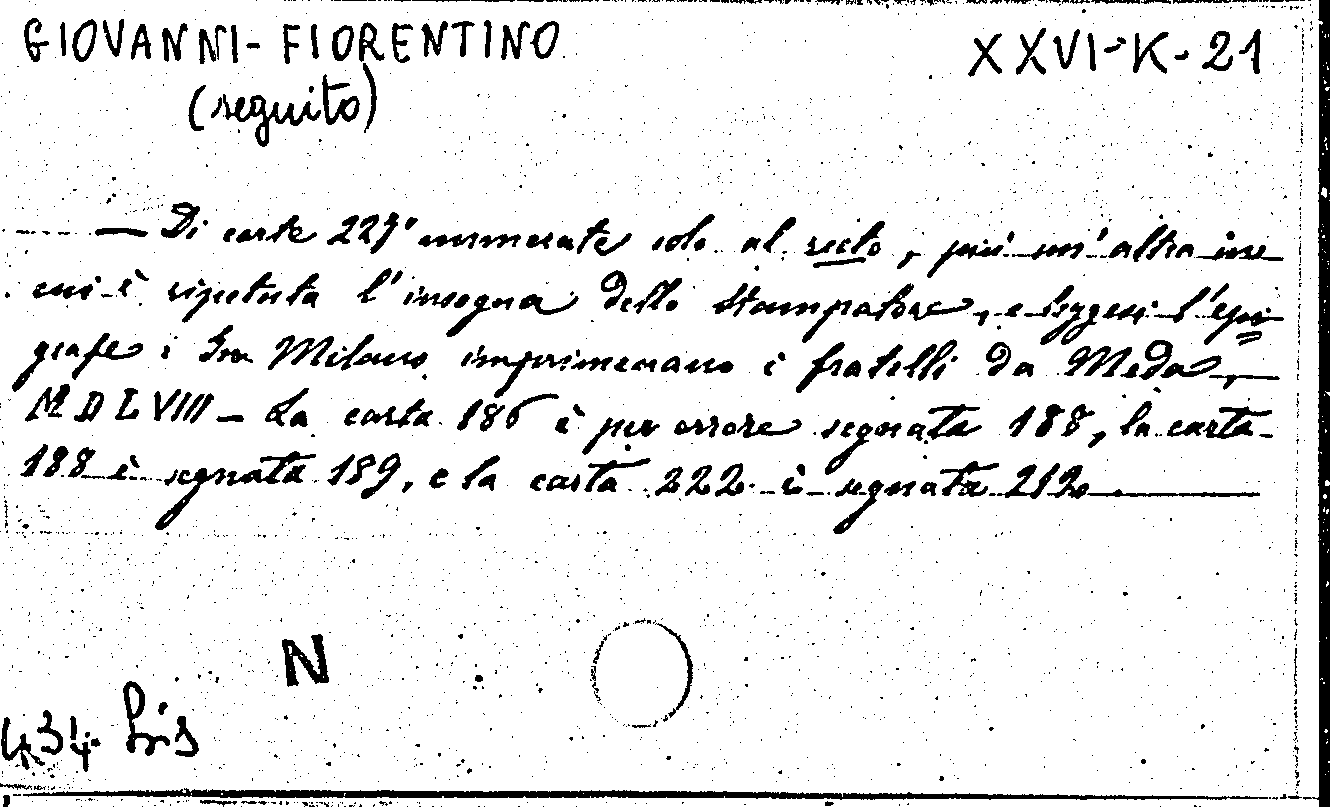 GIOVANNI-FIORENTINO XXVI-K-21
(seguito)
— Di carte 227 numerate solo al recto, più un'altra in
cui è ripetuta l'insegna dello Stampatore, e leggesi l'epi=
grafe: In Milano imprimevano i fratelli da Meda,
MDLVIII - La carta 186 è per errore segnata 188, la carta
188 è segnata 189, e la carta 222 è segnata 212
N
434 bis